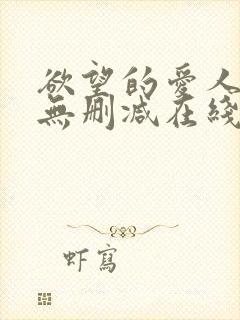 欲望的爱人
無删减在綫
虾寫